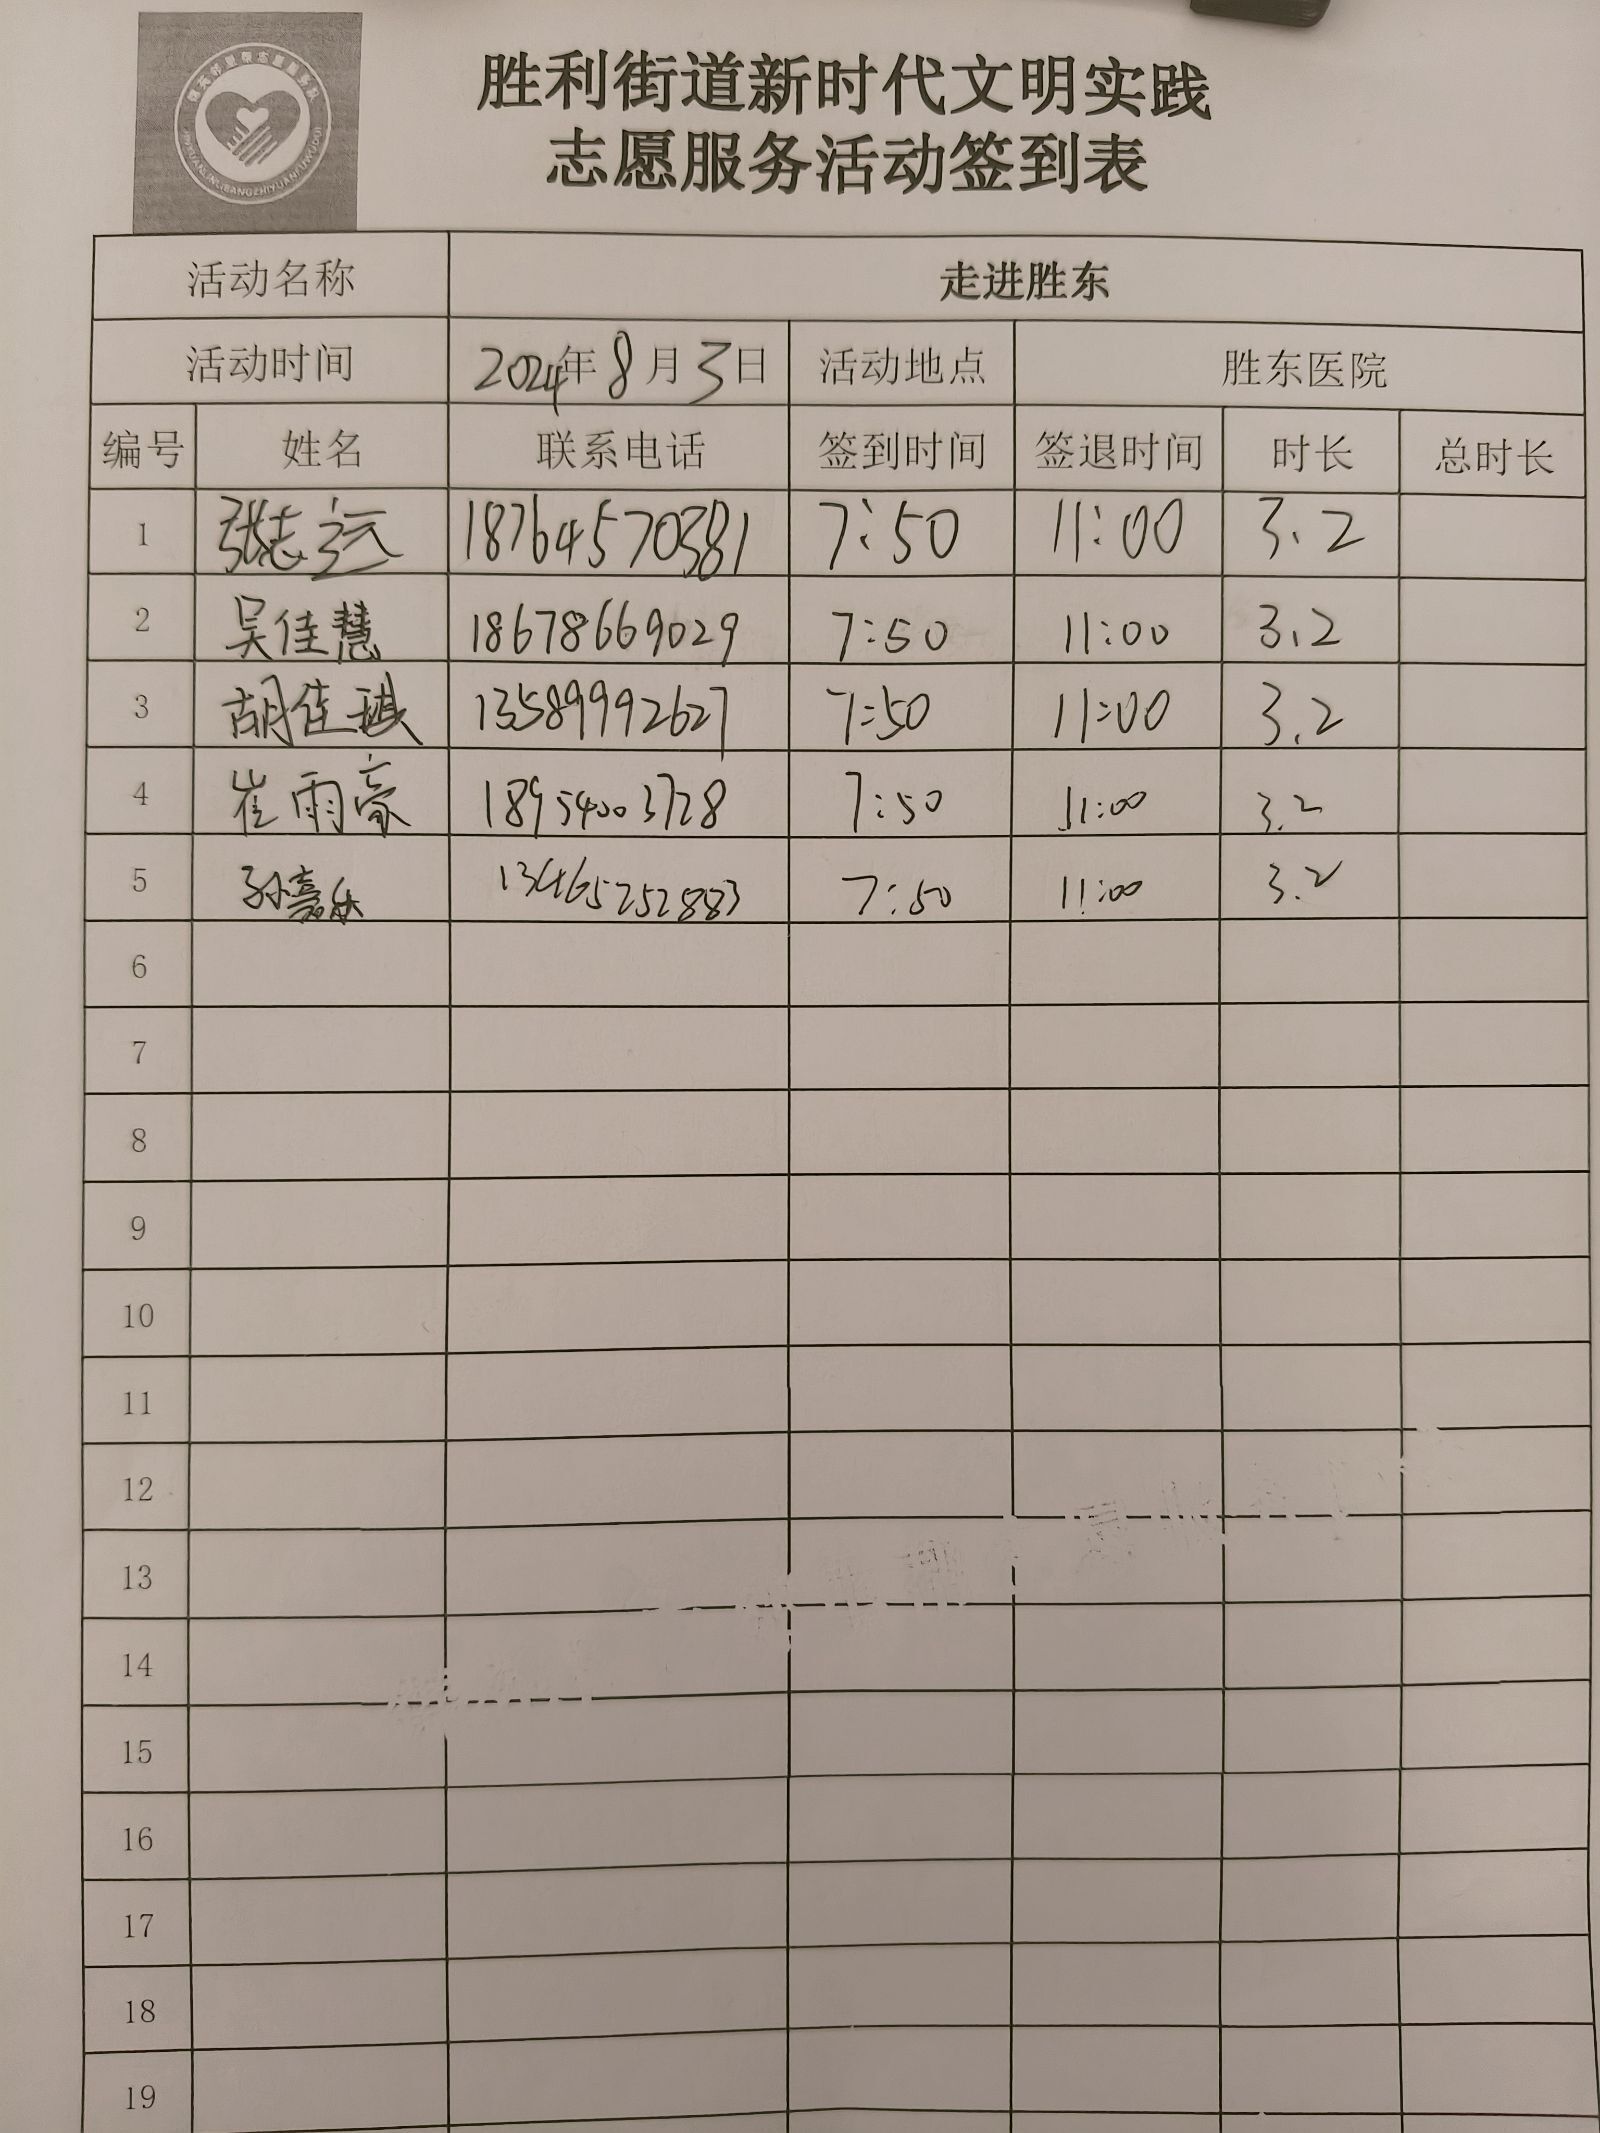 胜利街道新时代文明实践
志愿服务活动签到表
活动名称 走进胜东
活动时间 2024年8月3日 活动地点 胜东医院
编号 姓名 联系电话 签到时间 签退时间 时长 总时长
1 张志远 18764570381 7:50 11:00 3.2
2 吴佳慧 18678669029 7:50 11:00 3.2
3 胡佳琪 13589992627 7:50 11:00 3.2
4 崔雨豪 18954003728 7:50 11:00 3.2
5 孙嘉乐 13465252883 7:50 11:00 3.2
6
7
8
9
10
11
12
13
14
15
16
17
18
19